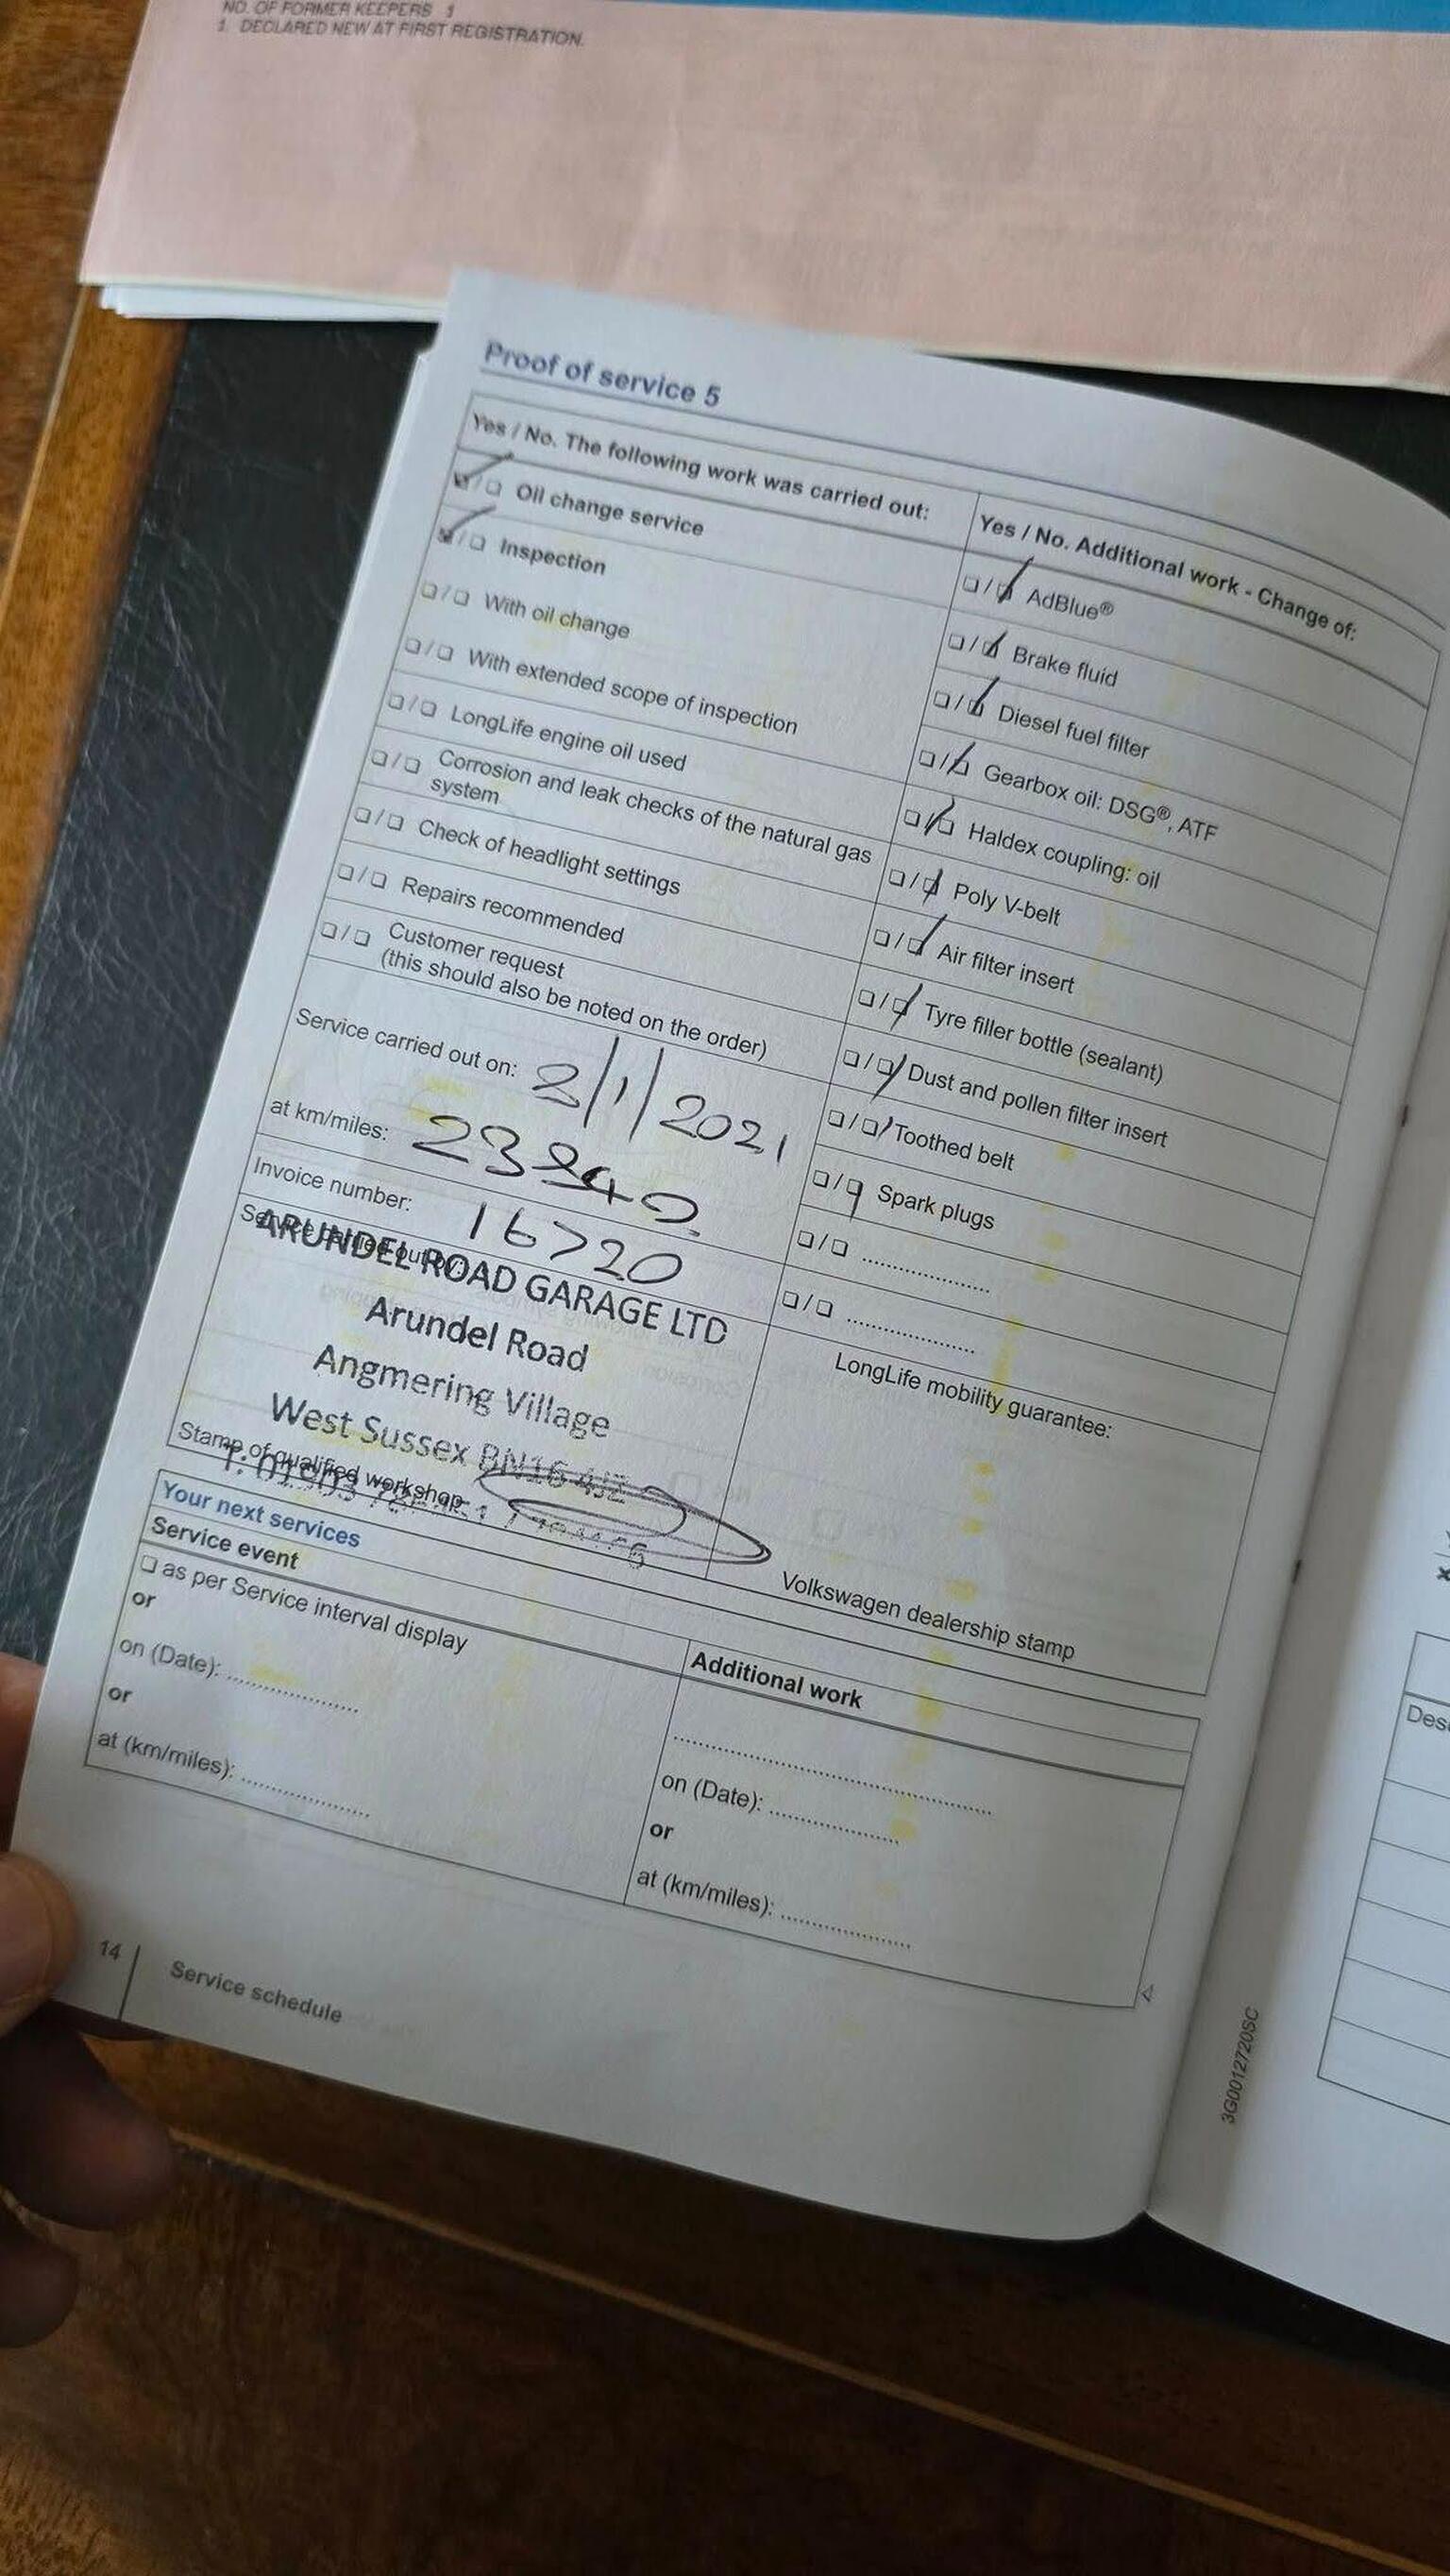 NO. OF FORMER KEEPERS 1
1. DECLARED NEW AT FIRST REGISTRATION.
Proof of service 5
Yes / No. The following work was carried out:
Oil change service
Inspection
With oil change
With extended scope of inspection
LongLife engine oil used
Corrosion and leak checks of the natural gas
system
Check of headlight settings
Repairs recommended
Customer request
(this should also be noted on the order)
Yes / No. Additional work - Change of:
AdBlue®
Brake fluid
Diesel fuel filter
Gearbox oil: DSG®, ATF
Haldex coupling: oil
Poly V-belt
Air filter insert
Tyre filler bottle (sealant)
Dust and pollen filter insert
Toothed belt
Spark plugs
Service carried out on: 2/1/2021
at km/miles:
Invoice number: 16720
Service carried out by:
ARUNDEL ROAD GARAGE LTD
Arundel Road
Angmering Village
West Sussex BN16 4JZ
Stamp of qualified workshop
LongLife mobility guarantee:
Volkswagen dealership stamp
Your next services
Service event
as per Service interval display
or
on (Date):
or
at (km/miles):
Additional work
on (Date):
or
at (km/miles):
14
Service schedule
3G0012720SC